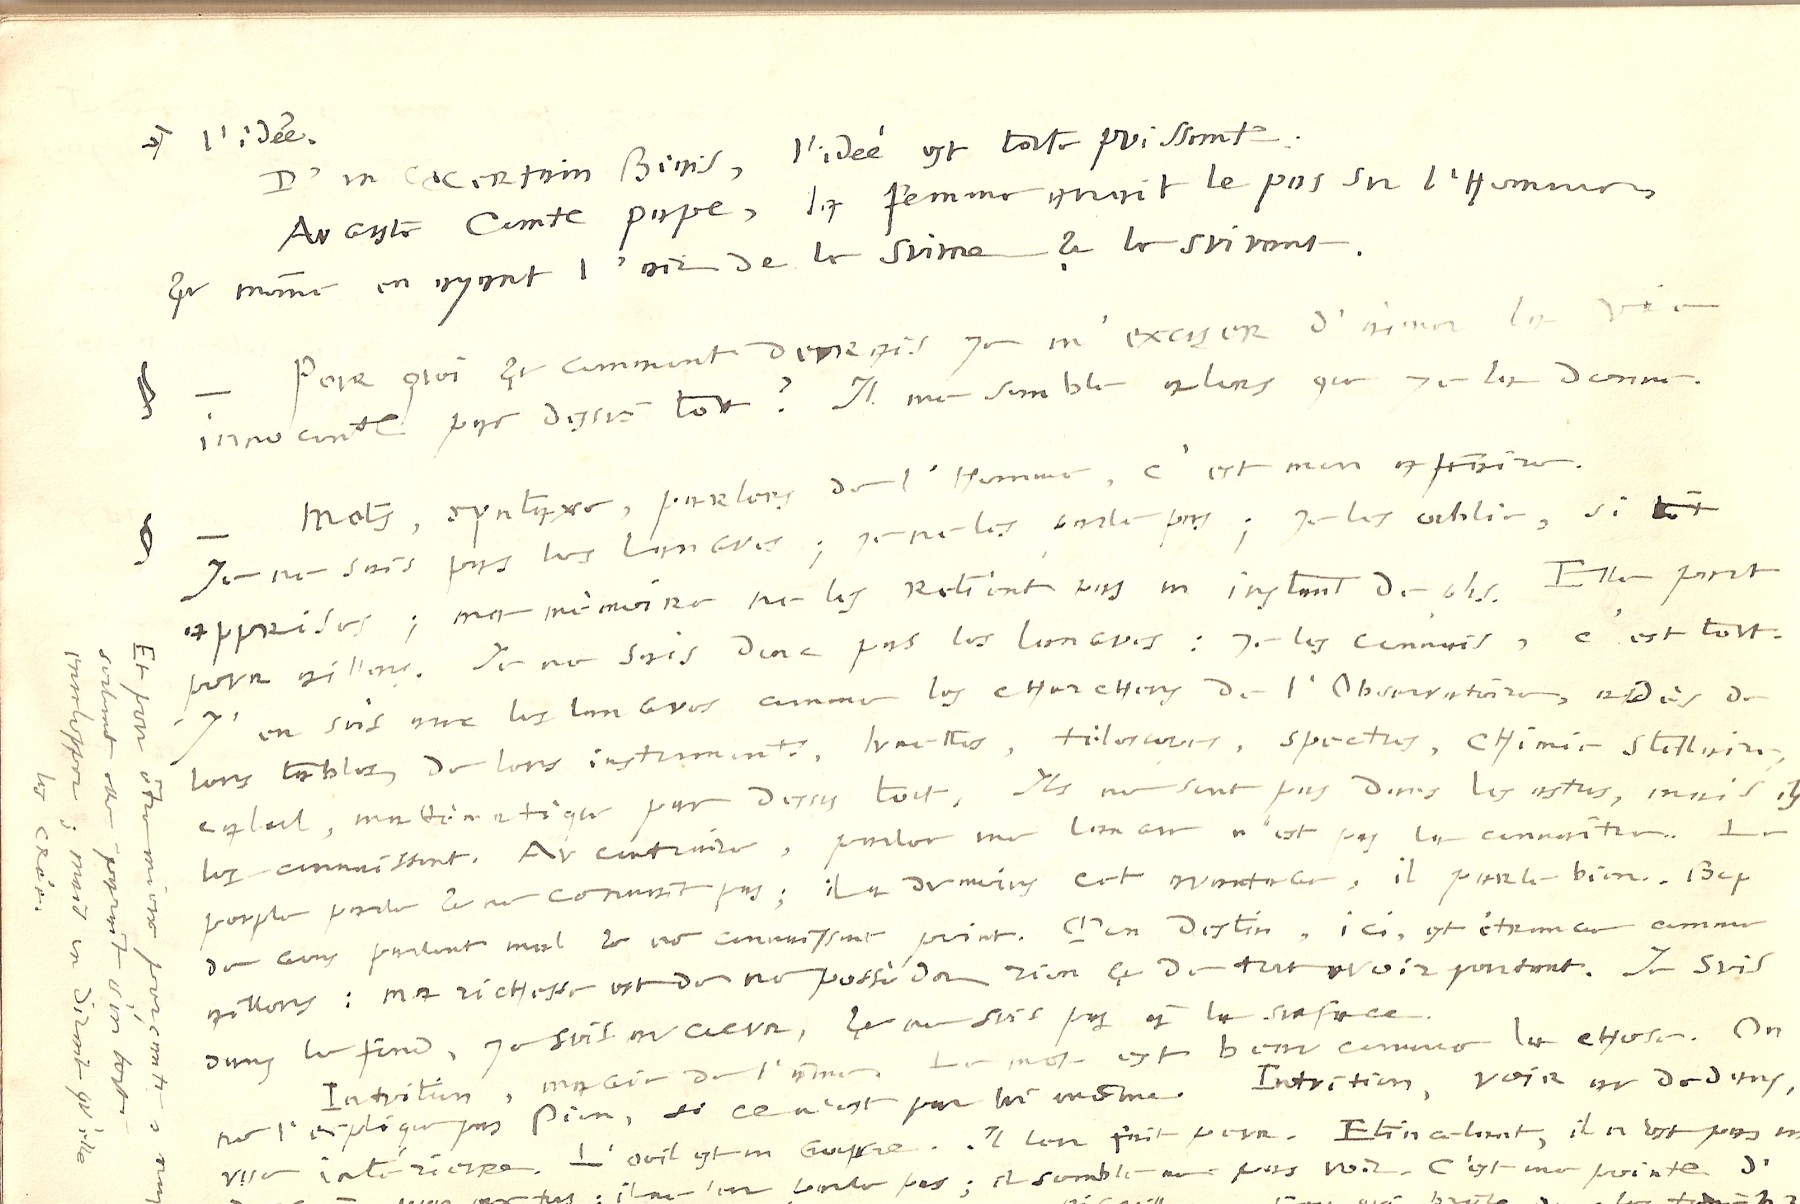 l'idée.
D'un certain Biais, l'idée est toute puissante.
Auguste Comte pape, la femme aurait le pas sur l'Homme,
& même en ayant l'air de le suivre & le suivant.
§ — Pourquoi & comment devrais je m'excuser d'aimer la vie
innocente par dessus tout ? Il me semble alors que je la donne.
§ — Mots, syntaxe, parlers de l'Homme, c'est mon affaire.
Je ne sais pas les langues ; je ne les parle pas ; je les oublie, si tôt
apprises ; ma mémoire ne les retient pas un instant de plus. Elle part
pour ailleurs. Je ne sais donc pas les langues : je les connais, c'est tout.
J'en suis avec les langues comme les chercheurs de l'Observatoire, aidés de
leurs tables, de leurs instruments, lunettes, télescopes, spectres, chimie stellaire,
calcul, mathématique par dessus tout. Ils ne sont pas dans les astres, mais ils
les connaissent. Au contraire, parler une langue n'est pas la connaître. Le
peuple parle & ne connaît pas ; il a du moins cet avantage, il parle bien. Bcp
de gens parlent mal & ne connaissent point. Mon Destin, ici, est étrange comme
ailleurs : ma richesse est de ne posséder rien & de tout avoir pourtant. Je suis
dans le fond, je suis au cœur, & ne suis pas à la surface.
Intuition, magie de l'âme. Le mot est beau comme la chose. On
ne l'explique pas bien, si ce n'est par lui même. Intuition, voir au dedans,
vue intérieure. L'œil est un gouffre. Il leur fait peur. Etincelant, il n'est pas
il ne parle pas ; il semble ne pas voir. C'est une pointe d'
Et pour être mieux
surtout elle paraît d'un
envelopper ; mais on dirait qu'elle
les crée.